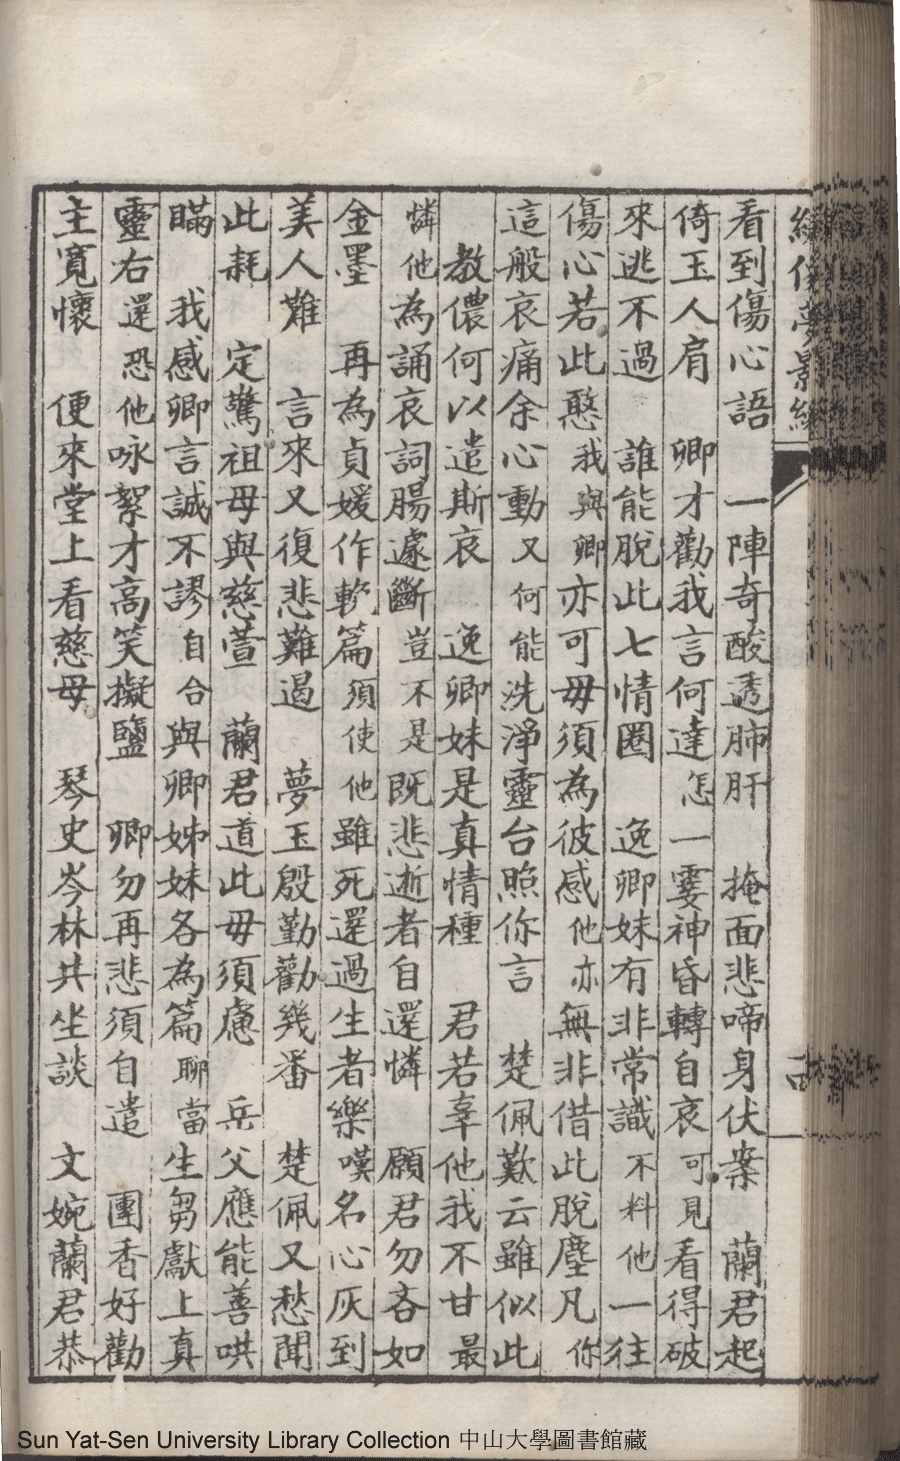 看到傷心語　一陣奇酸透肺肝　掩面悲啼身伏案　蘭君起
倚玉人肩　卿才勸我言何達怎一霎神昏轉自哀可見看得破
來逃不過　誰能脫此七情圈　逸卿妹有非常識不料他一往
傷心若此憨我與卿亦可毋須為彼感他亦無非借此脫塵凡你
這般哀痛余心動又何能洗淨靈台照你言　楚佩歎云雖似此
教儂何以遣斯哀　逸卿妹是真情種　君若辜他我不甘最
憐他為誦哀詞腸遽斷豈不是既悲逝者自還憐　願君勿吝如
金墨　再為貞媛作輓篇須使他雖死還過生者樂嘆名心灰到
美人難　言來又復悲難遏　夢玉殷勤勸幾番　楚佩又愁聞
此耗　定驚祖母與慈萱　蘭君道此毋須慮　兵父應能善哄
瞞　我感卿言誠不謬自合與卿姊妹各為篇聊當生芻獻上真
靈右還恐他咏絮才高笑擬鹽　卿勿再悲須自遣　團香好勸
主寬懷　便來堂上看慈母　琴史岑林共坐談　文婉蘭君恭
Sun Yat-Sen University Library Collection 中山大學圖書館藏